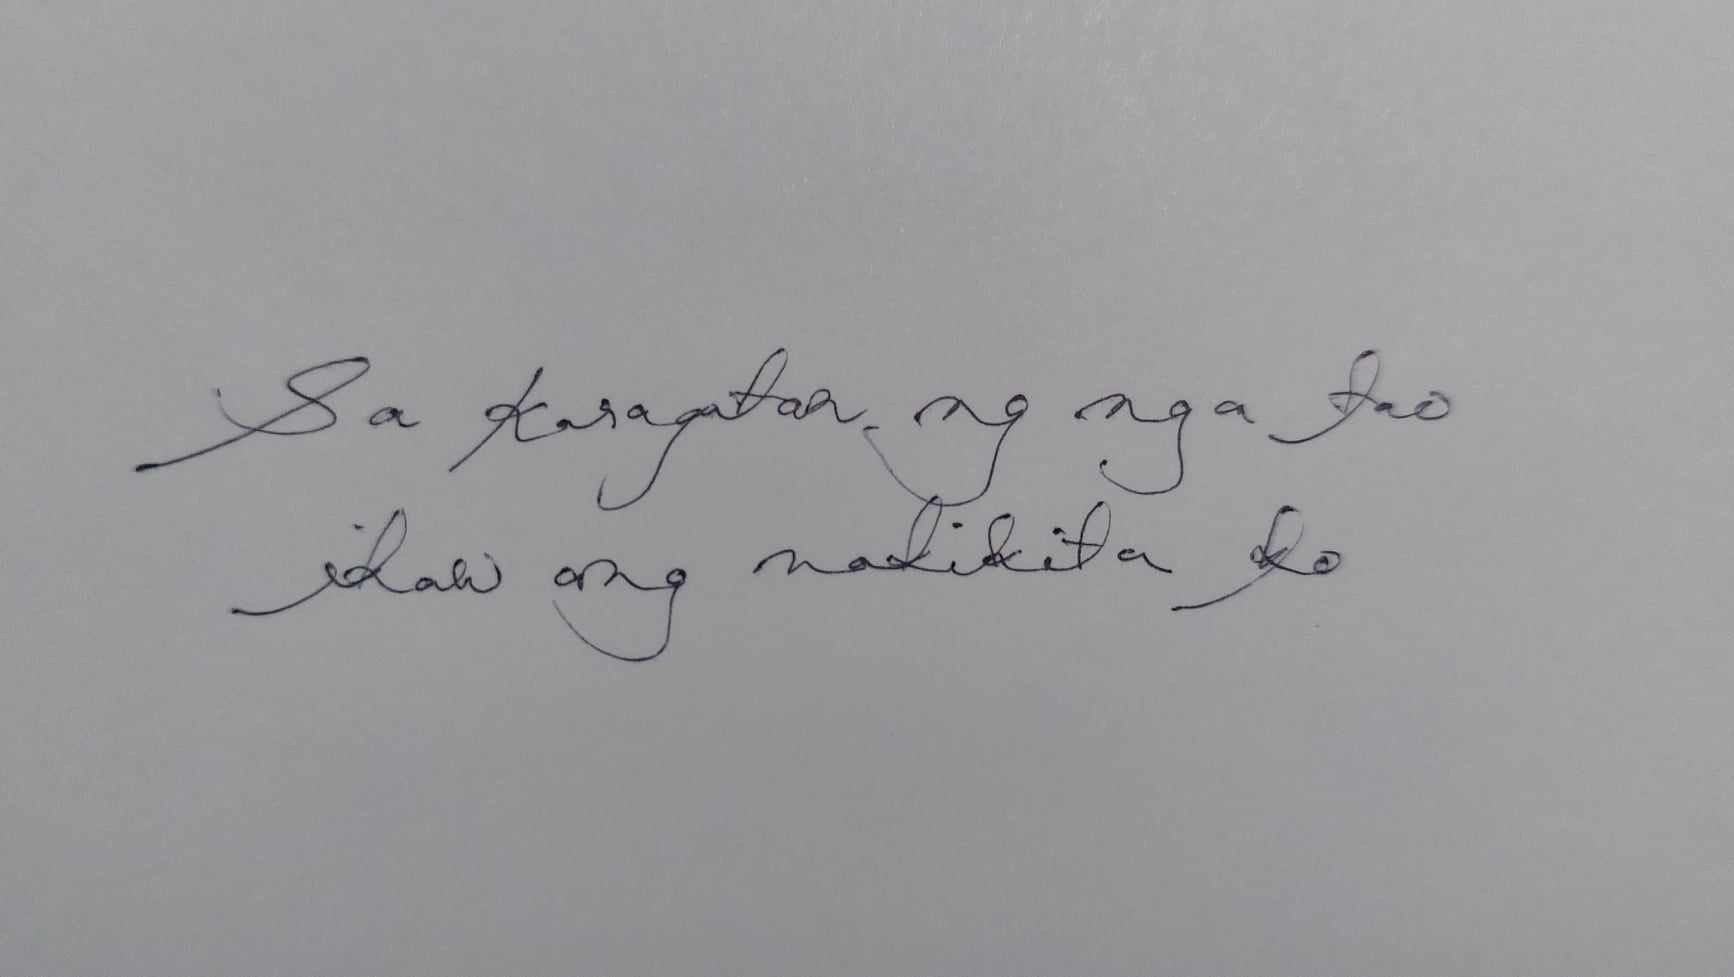 Sa karagatan ng nga tao
ikaw ang nakikita ko